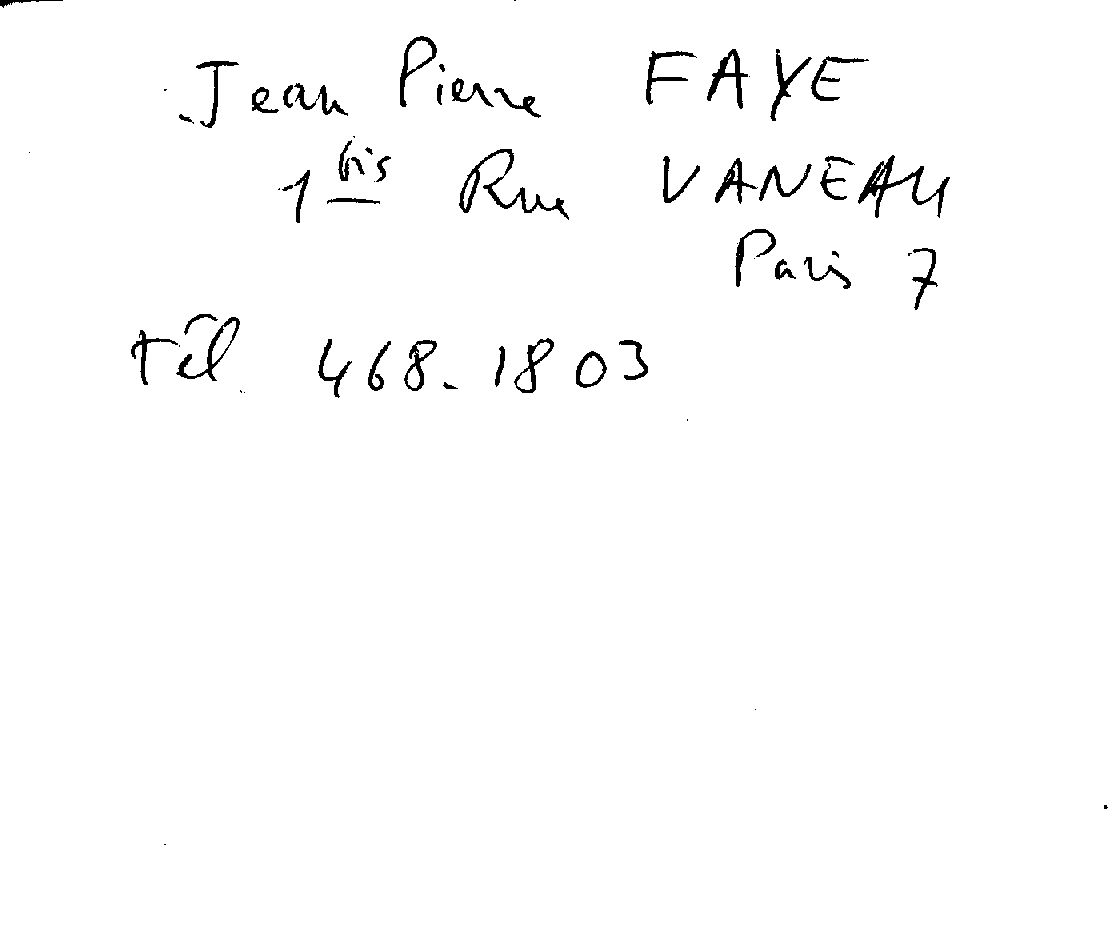 Jean Pierre FAYE
1 bis Rue VANEAU
Paris 7
Tél. 468-1803